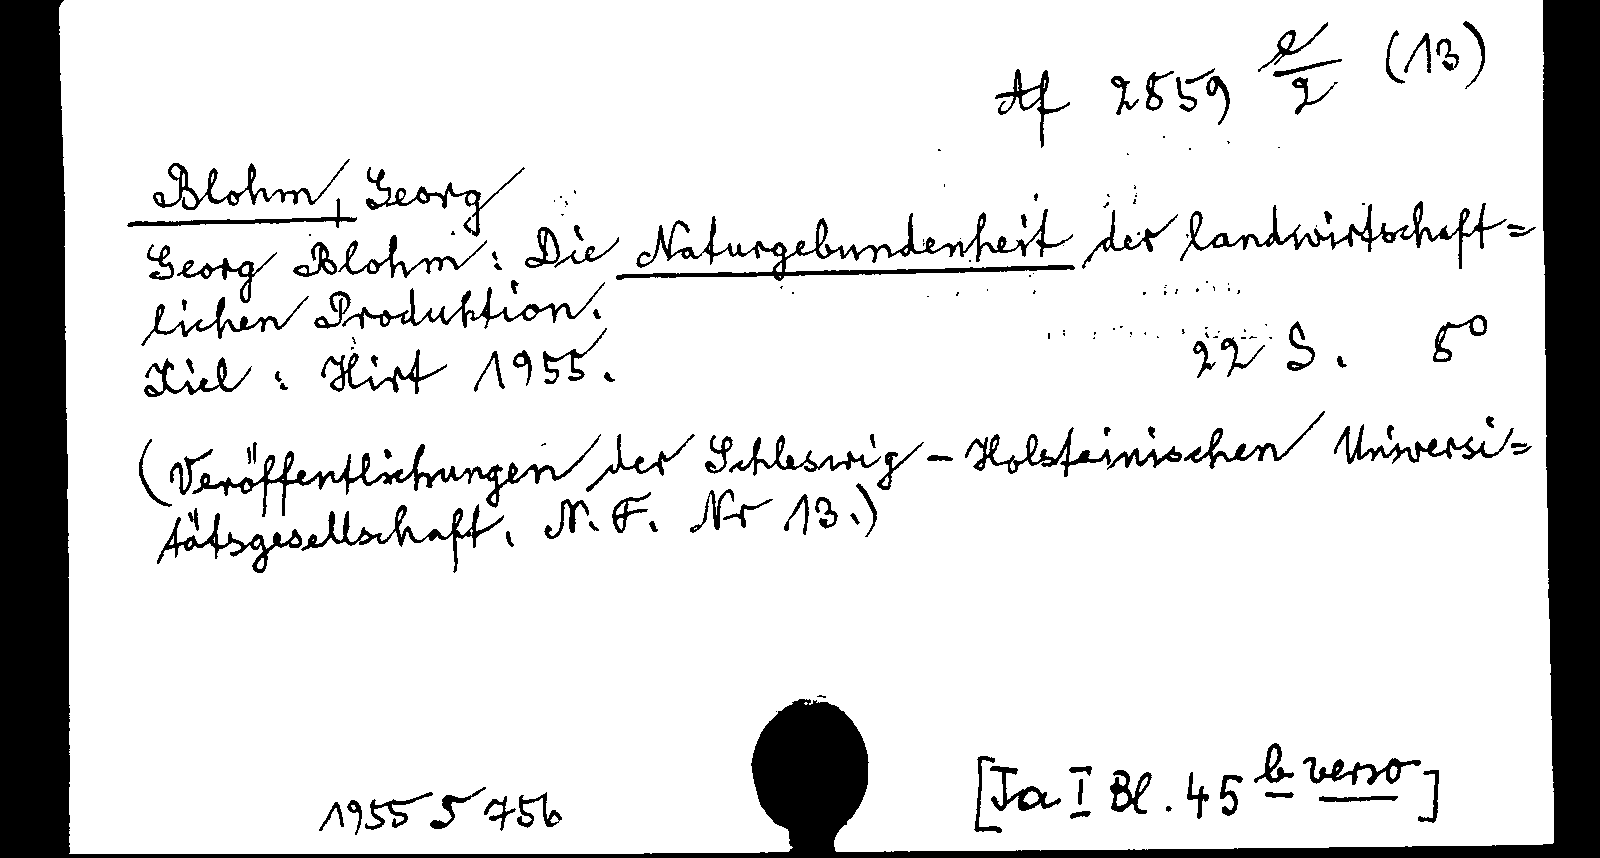 Af 2859 e/2 (13)
Blohm, Georg
Georg Blohm: Die Naturgebundenheit der landwirtschaft=
lichen Produktion.
Kiel: Hirt 1955. 22 S. 8°
(Veröffentlichungen der Schleswig-Holsteinischen Universi=
tätsgesellschaft. N. F. Nr 13.)
1955 S 756 [Ja I Bl. 45 b verso]